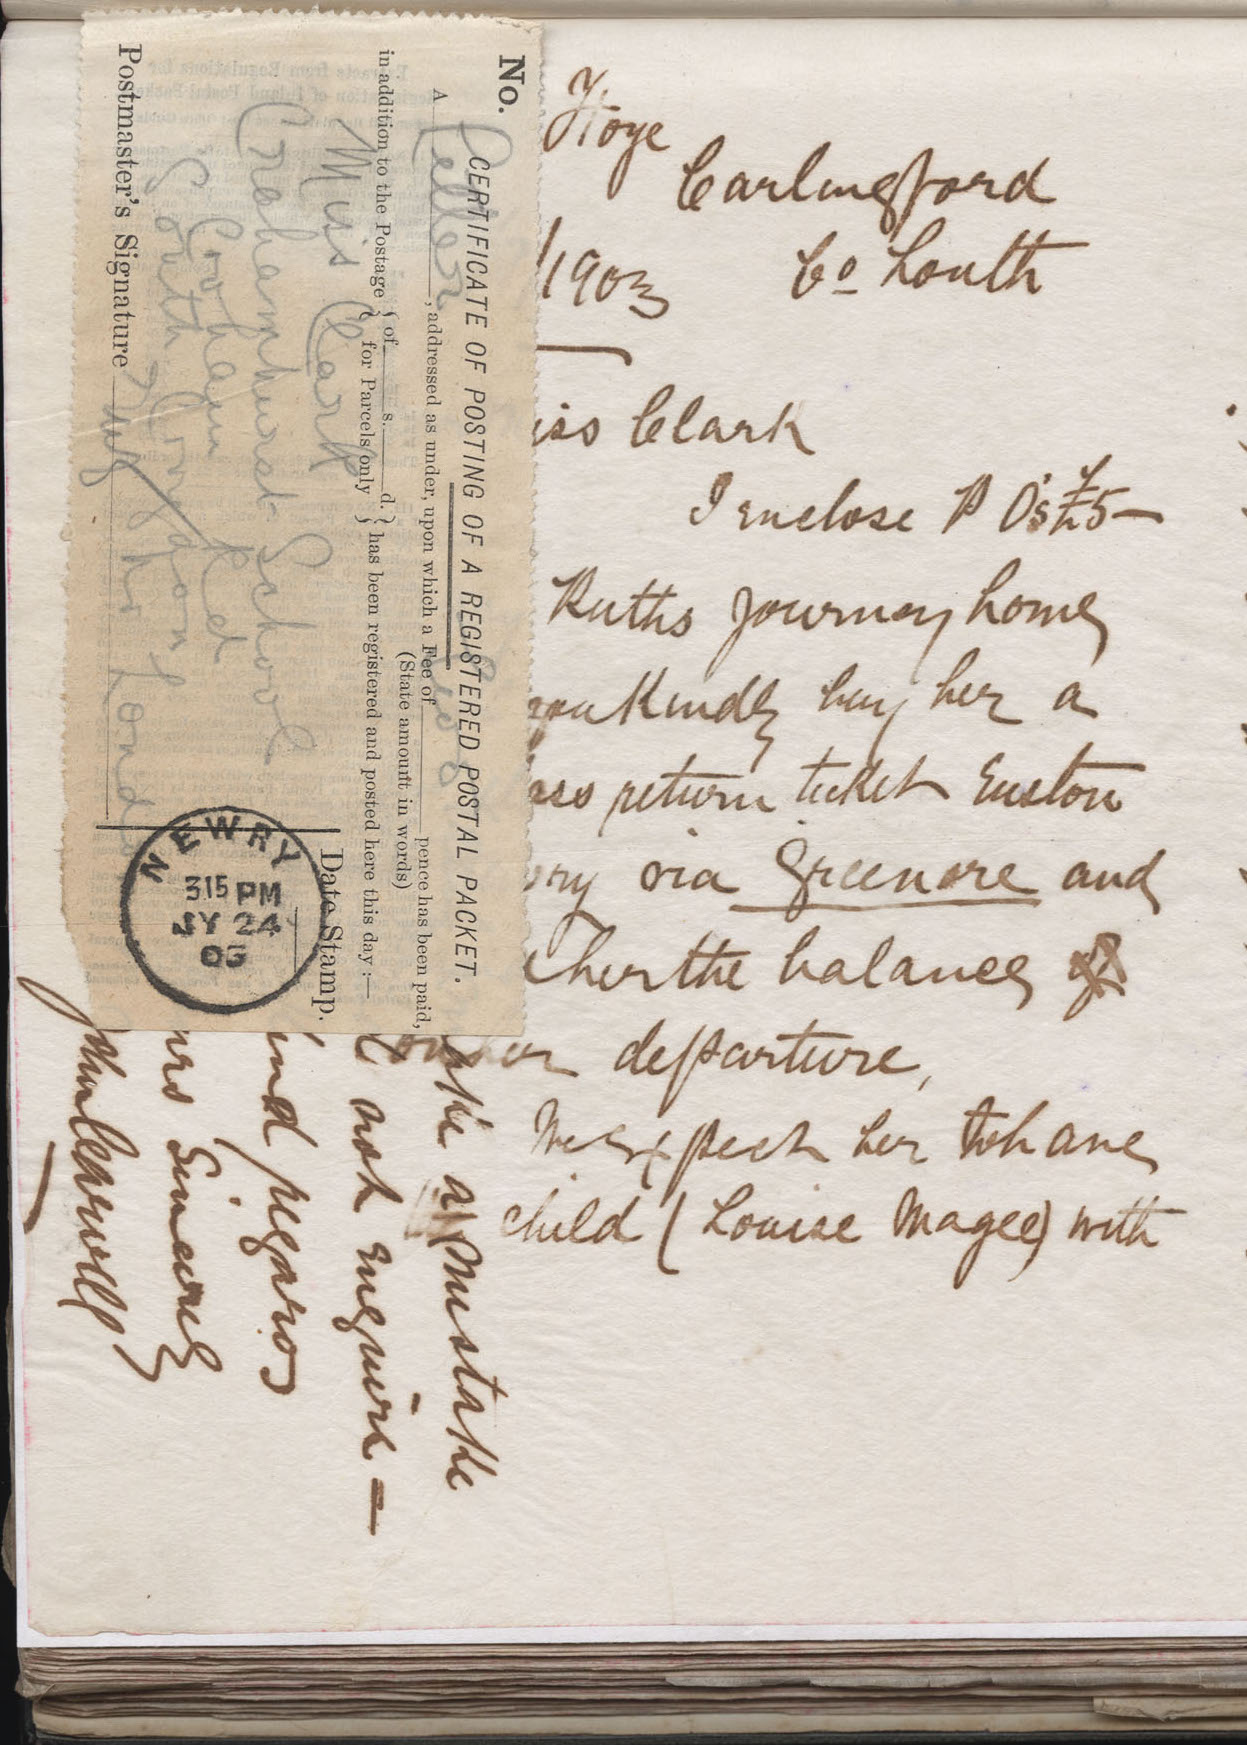 No.
CERTIFICATE OF POSTING OF A REGISTERED POSTAL PACKET.
A Letter, addressed as under, upon which a Fee of pence has been paid,
(State amount in words)
in addition to the Postage { of s. d. } has been registered and posted here this day :—
for Parcels only
Miss Clark
Crahamhurst School
Rd
South London
Date Stamp.
Postmaster's Signature
NEWRY
315 PM
JY 24
03
Carlingford
/1903 Co Louth
iss Clark
I enclose P O's £5—
Ruths journey home
you kindly buy her a
ass return ticket Euston
ry via Greenore and
her the balance of
departure,
We expect her to have
child (Louise Magee) with
a mistake
not enquire —
ind regards
rs Sincerely